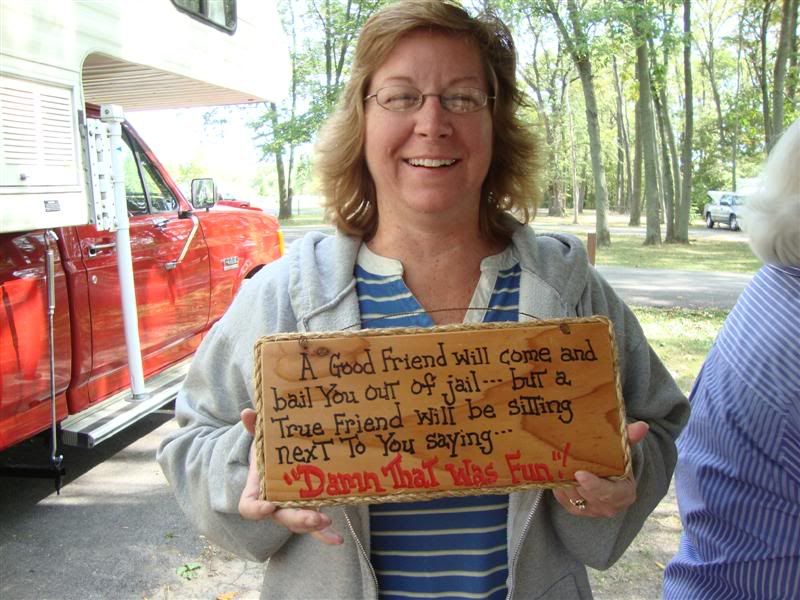 A Good Friend will come and
bail You out of jail... but a
True Friend will be sitting
next to You saying...
"Damn That Was Fun"!